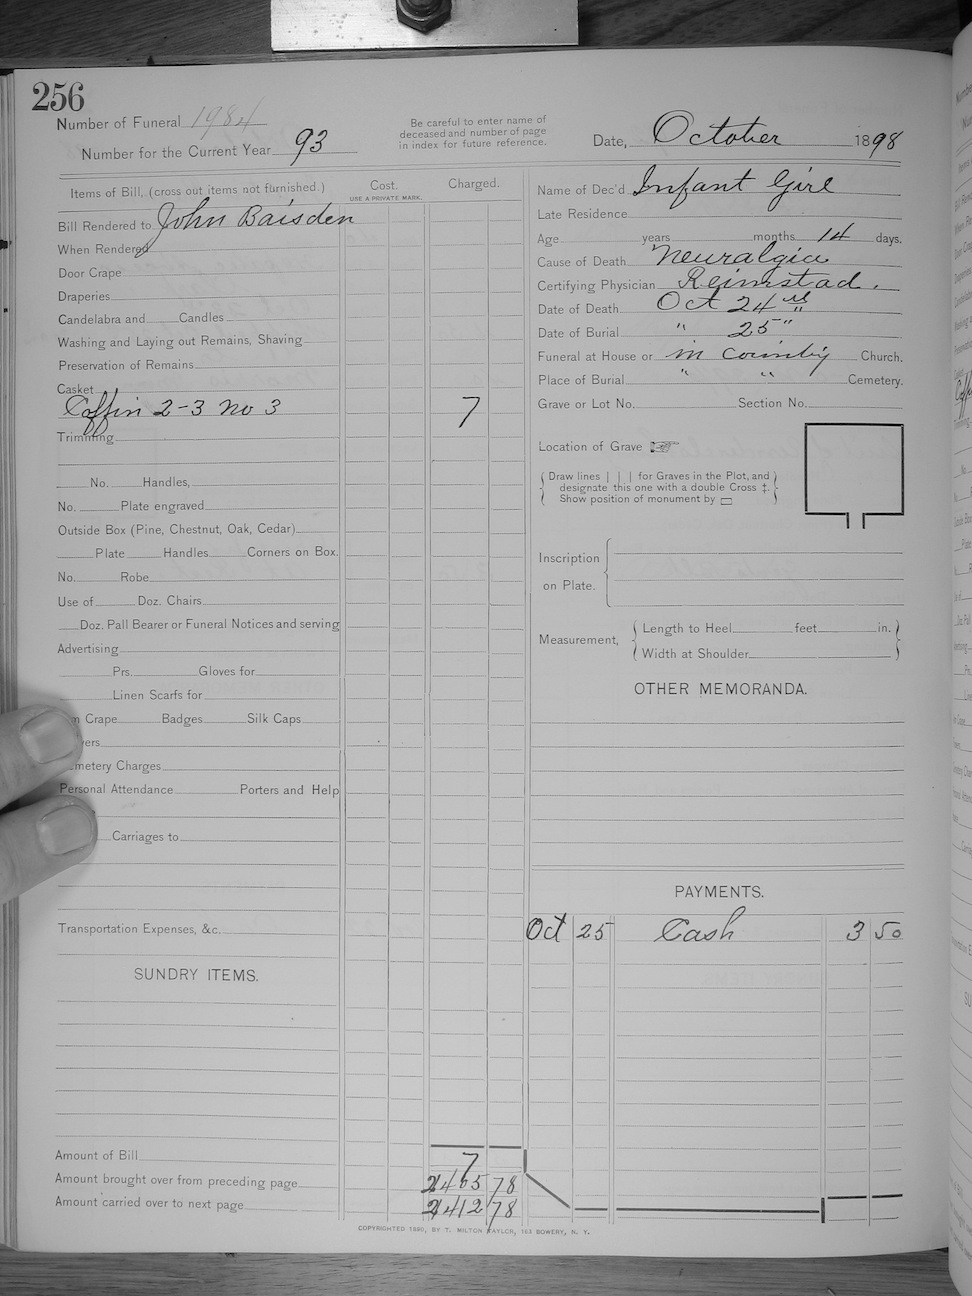 256
Number of Funeral 1984
Number for the Current Year 93
Be careful to enter name of
deceased and number of page
in index for future reference.
Date, October 1898
Items of Bill, (cross out items not furnished.)
Cost.
USE A PRIVATE MARK.
Charged.
Bill Rendered to John Baisden
When Rendered
Door Crape
Draperies
Candelabra and Candles
Washing and Laying out Remains, Shaving
Preservation of Remains
Casket
Coffin 2-3 No 3 7
Trimming
No. Handles,
No. Plate engraved
Outside Box (Pine, Chestnut, Oak, Cedar)
Plate Handles Corners on Box.
No. Robe
Use of Doz. Chairs
Doz. Pall Bearer or Funeral Notices and serving
Advertising
Prs. Gloves for
Linen Scarfs for
Crape Badges Silk Caps
Charges
Personal Attendance Porters and Help
Carriages to
Transportation Expenses, &c.
SUNDRY ITEMS.
Amount of Bill 7
Amount brought over from preceding page 78
Amount carried over to next page 2412 78
Name of Dec'd Infant Girl
Late Residence
Age years months 14 days.
Cause of Death Neuralgia
Certifying Physician Reimstad.
Date of Death Oct 24
Date of Burial " 25"
Funeral at House or in County Church.
Place of Burial " " Cemetery.
Grave or Lot No. Section No.
Location of Grave ☞
Draw lines | | | for Graves in the Plot, and
designate this one with a double Cross ‡.
Show position of monument by ▭
Inscription
on Plate.
Measurement,
Length to Heel feet in.
Width at Shoulder
OTHER MEMORANDA.
PAYMENTS.
Oct 25 Cash 3 50
COPYRIGHTED 1890, BY T. MILTON TAYLOR, 163 BOWERY, N. Y.